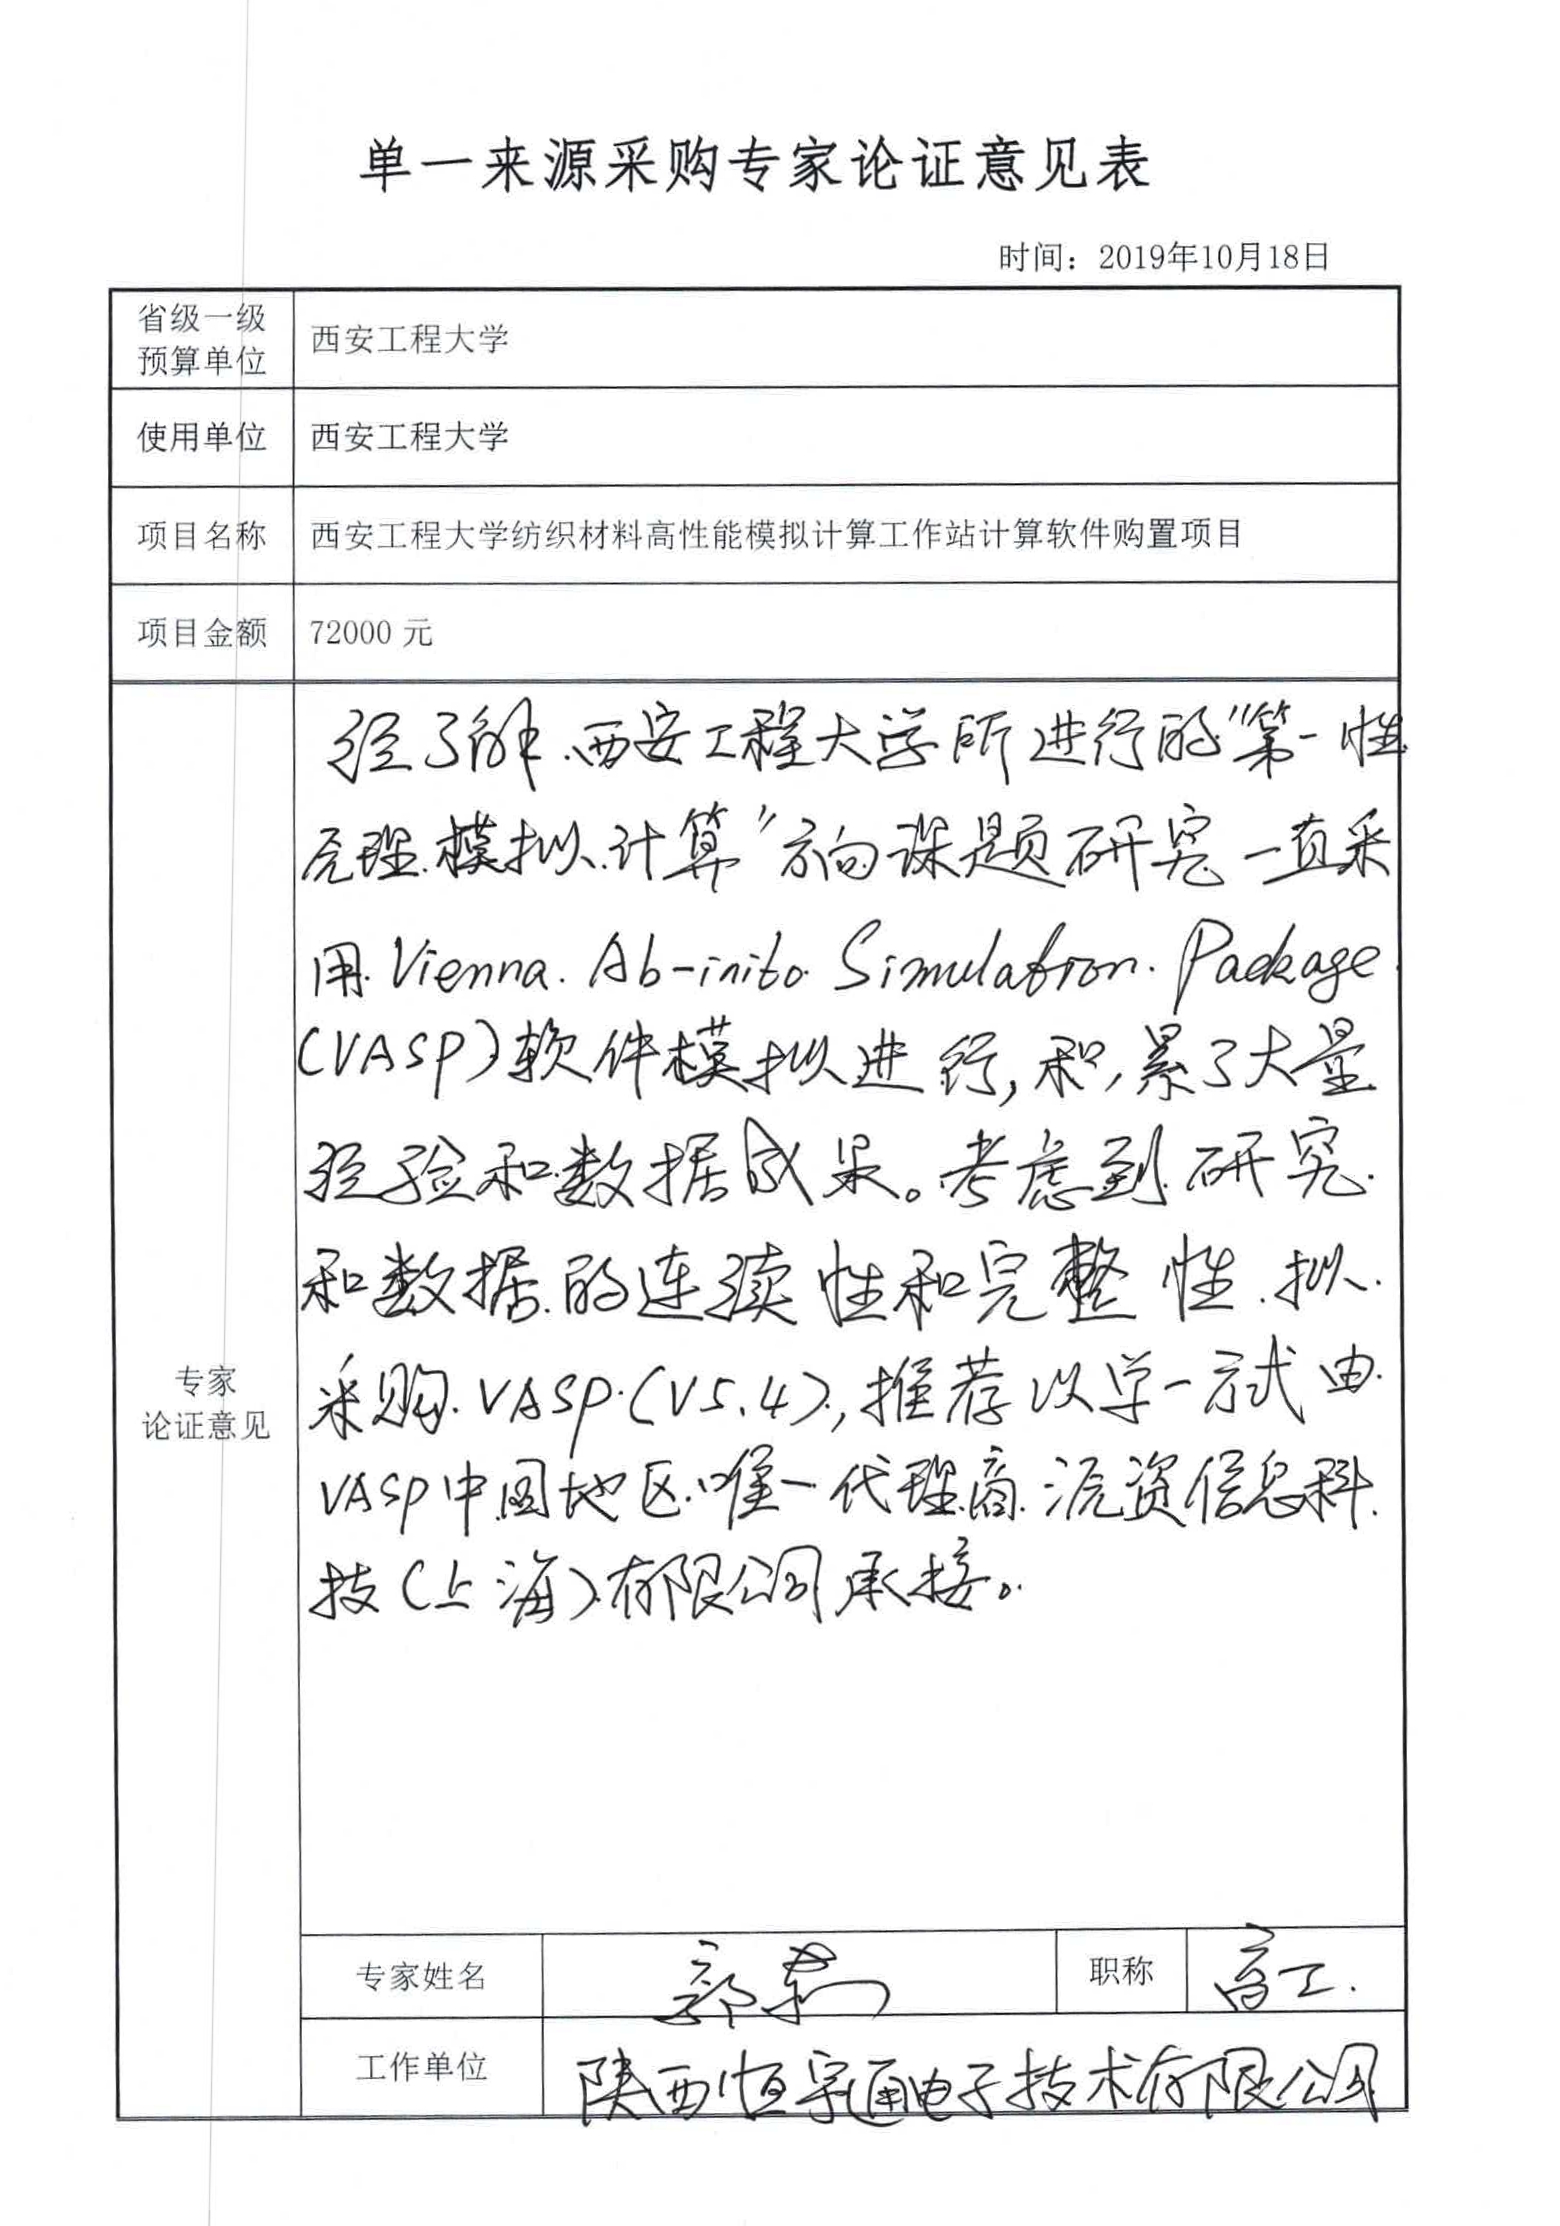 单一来源采购专家论证意见表
时间：2019年10月18日
省级一级
预算单位
西安工程大学
使用单位
西安工程大学
项目名称
西安工程大学纺织材料高性能模拟计算工作站计算软件购置项目
项目金额
72000 元
经了解.西安工程大学所进行的“第一性
原理模拟计算”方向课题研究一直采
用Vienna Ab-inito Simulation Package
(VASP)软件模拟进行,积累了大量
经验和数据成果。考虑到研究
和数据的连续性和完整性.拟
采购VASP(V5.4),推荐以单一方式由
VASP中国地区唯一代理商源资信息科
技(上海)有限公司承接。
专家
论证意见
专家姓名
郭
职称
高工.
工作单位
陕西恒宇通电子技术有限公司